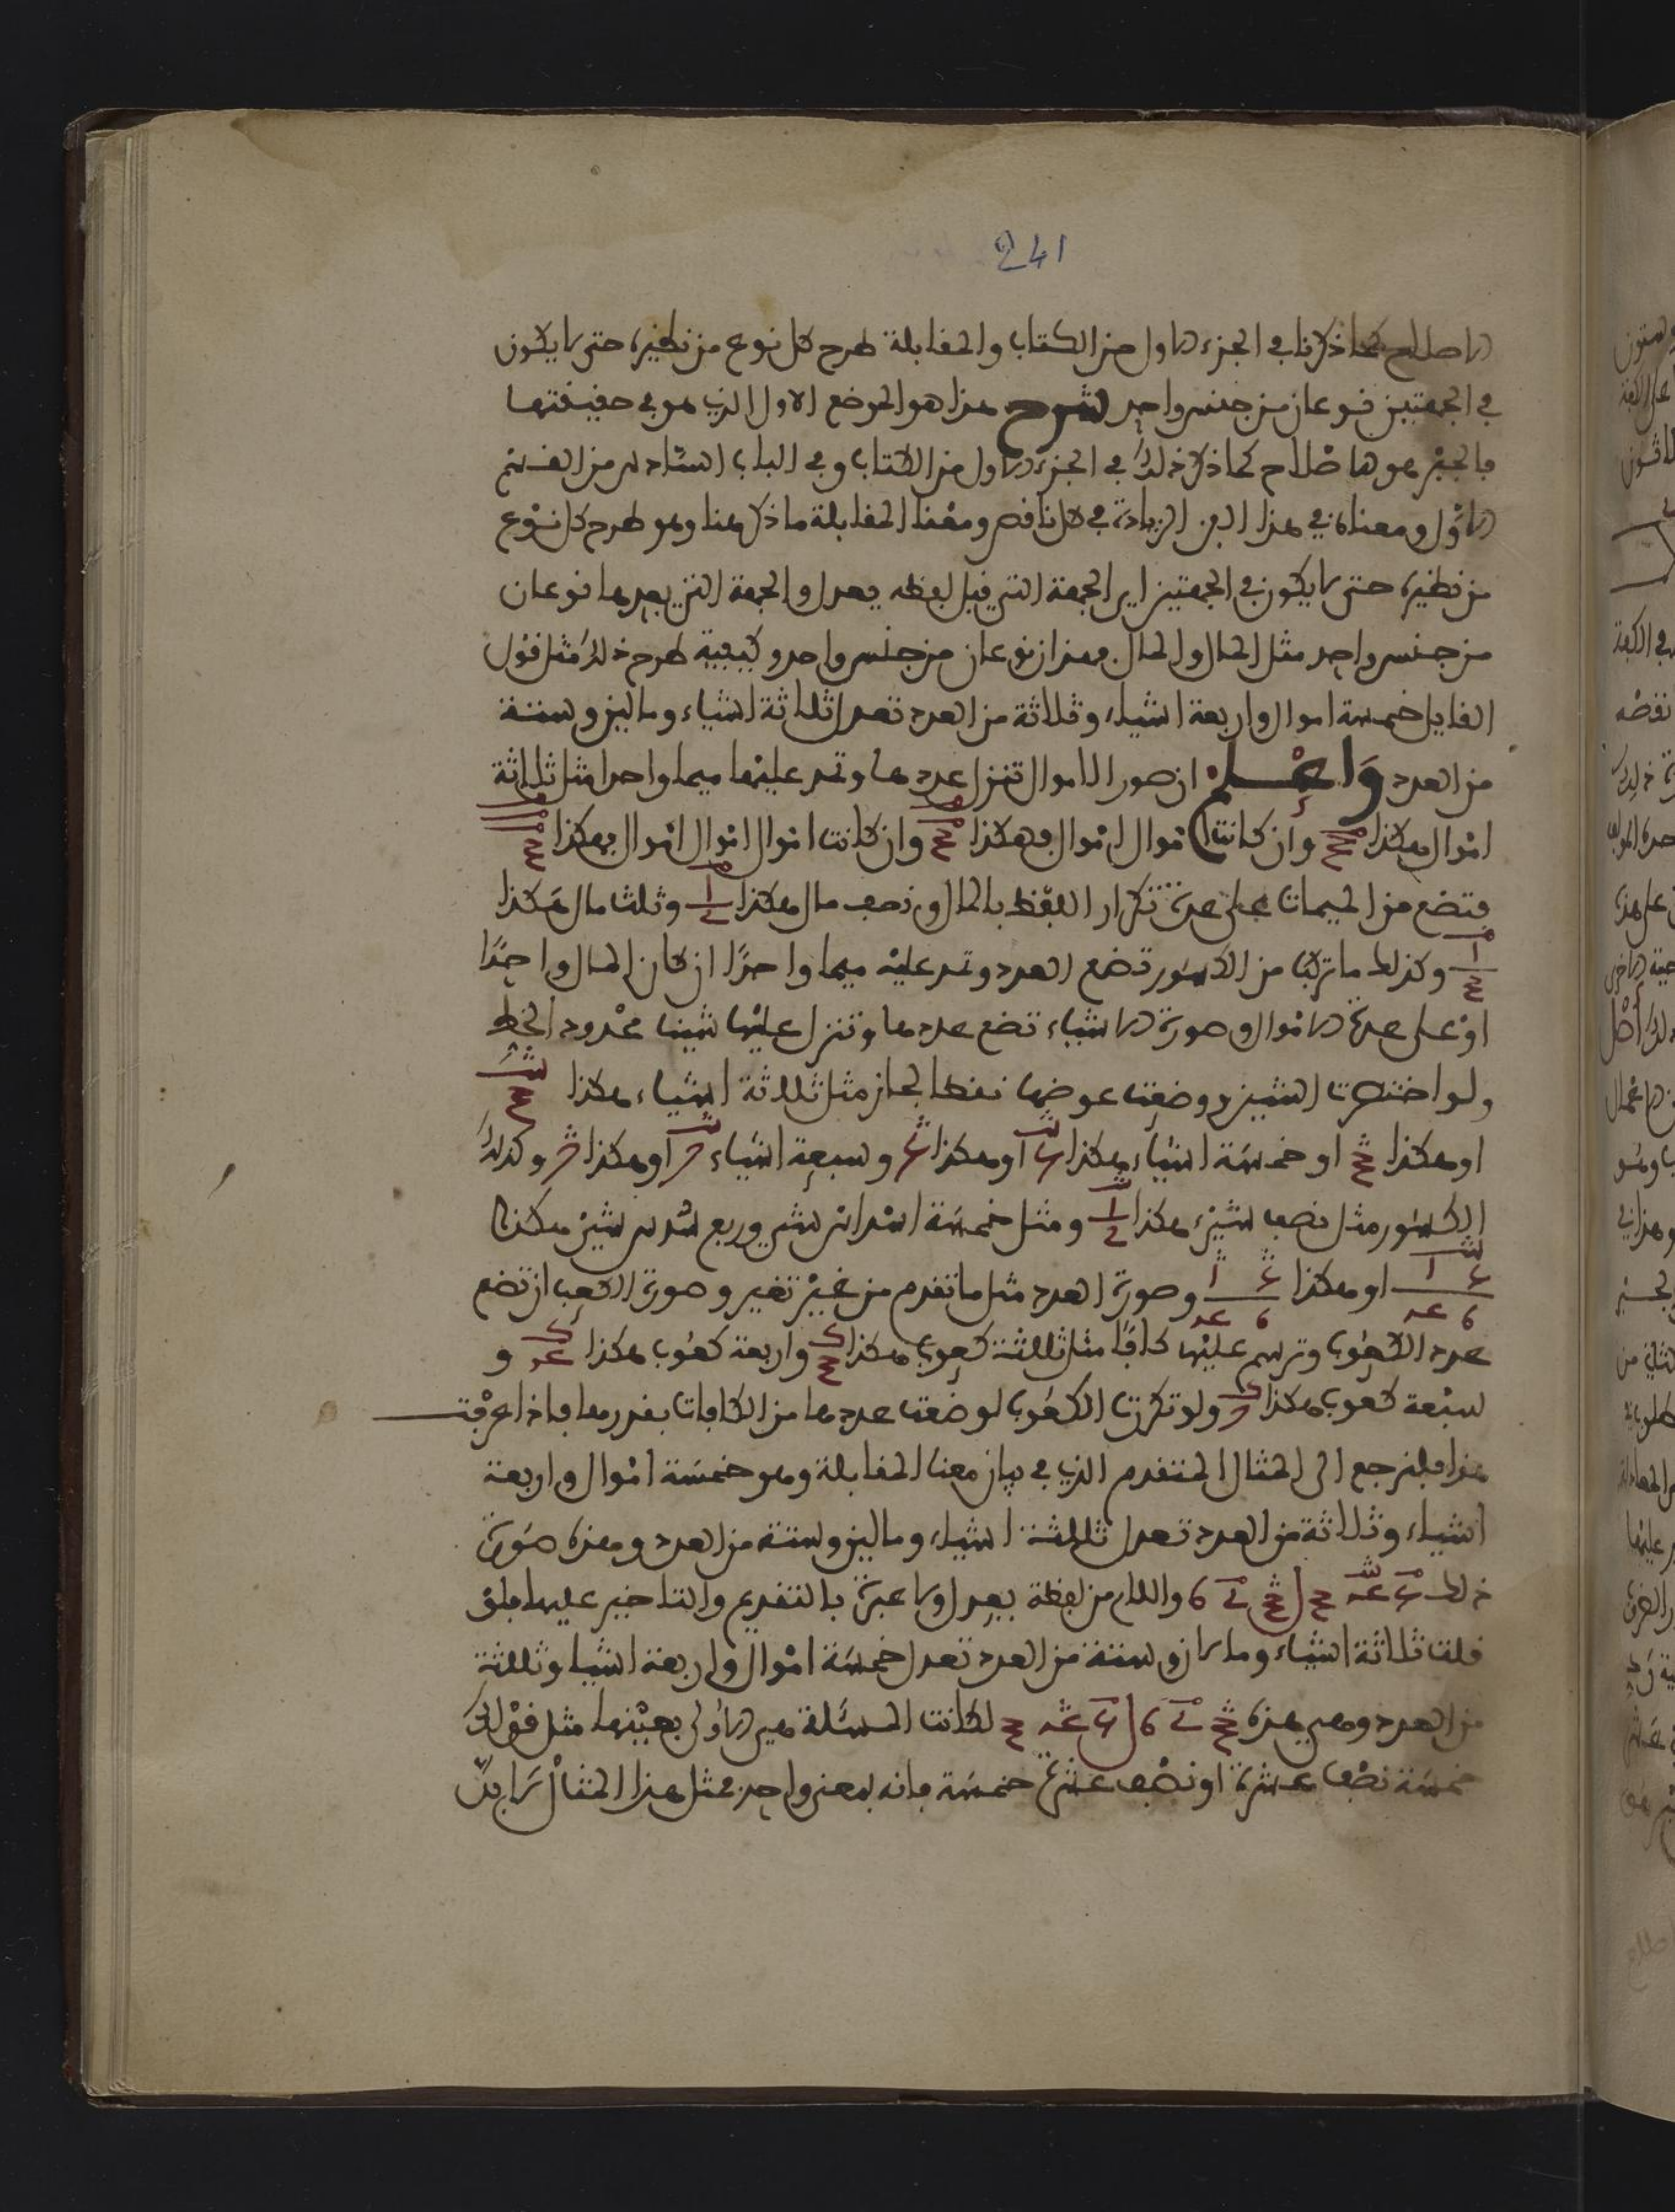 241
الاصلاح كما ذكرنا في الجزء الاول من الكتاب والمقابلة طرح كل نوع من نظيره حتى لا يكون
في الجهتين نوعان من جنس واحد شرح هذا هو الموضع الاول الذي هو في حقيقتها
فالجبر هو الاصلاح كما ذكر ذلك في الجزء الاول من الكتاب وفي الباب السادس من القسم
الاول ومعناه في هذا الفن الزيادة في كل ناقص ومعنا المقابلة ما ذكر هنا وهو طرح كل نوع
من نظيره حتى لا يكون في الجهتين اي الجهة التي قبل لفظه يعدل والجهة التي بعدها نوعان
من جنس واحد مثل المال والمال فهذان نوعان من جنس واحد وكيفية طرح ذلك مثل قول
القايل خمسة اموال واربعة اشياء وثلاثة من العدد تعدل ثلاثة اشياء ومالين وستة
من العدد واعلم ان صور الاموال تنزل عددها وتمد عليها ميما واحدا مثل ثلاثة
اموال هكذا وان كانت اموال اموال فهكذا وان كانت اموال اموال اموال فهكذا
فتضع من الميمات على عدة تكرار اللفظ بالمال ونصف مال هكذا وثلث مال هكذا
وكذلك ما تركب من الكسور تضع العدد وتمد عليه ميما واحدًا ان كان المال واحدًا
او على عدة الاموال وصورة الاشياء تضع عددها وتنزل عليها شينا ممدود الخط
ولو اختصرت الشين ووضعت عوضها نقطا لجاز مثل ثلاثة اشياء هكذا
او هكذا او خمسة اشياء هكذا او هكذا وسبعة اشياء او هكذا وكذلك
الكسور مثل نصف شيء هكذا ومثل خمسة اسداس شيء وربع سدس شيء هكذا
او هكذا وصورة العدد مثل ما تقدم من غير تغير وصورة الكعب ان تضع
عدد الكعوب وترسم عليها كافا مثل ثلاثة كعوب هكذا واربعة كعوب هكذا و
سبعة كعوب هكذا ولو تكررت الكعوب لوضعت عددها من الكافات بقدرها فاذا عرفت
هذا فلنرجع الى المثال المتقدم الذي في بيان معنا المقابلة وهو خمسة اموال واربعة
اشياء وثلاثة من العدد تعدل ثلاثة اشياء ومالين وستة من العدد وهذه صورة
ذلك واللام من لفظة يعدل ولا عبرة بالتقديم والتاخير عليها فلو
قلت ثلاثة اشياء ومالان وستة من العدد تعدل خمسة اموال واربعة اشيا وثلاثة
من العدد وهي هذه لكانت المسئلة هي الاولى بعينها مثل قولك
خمسة نصف عشرة او نصف عشرة خمسة فانه لمعنى واحد فمثل هذا المثال